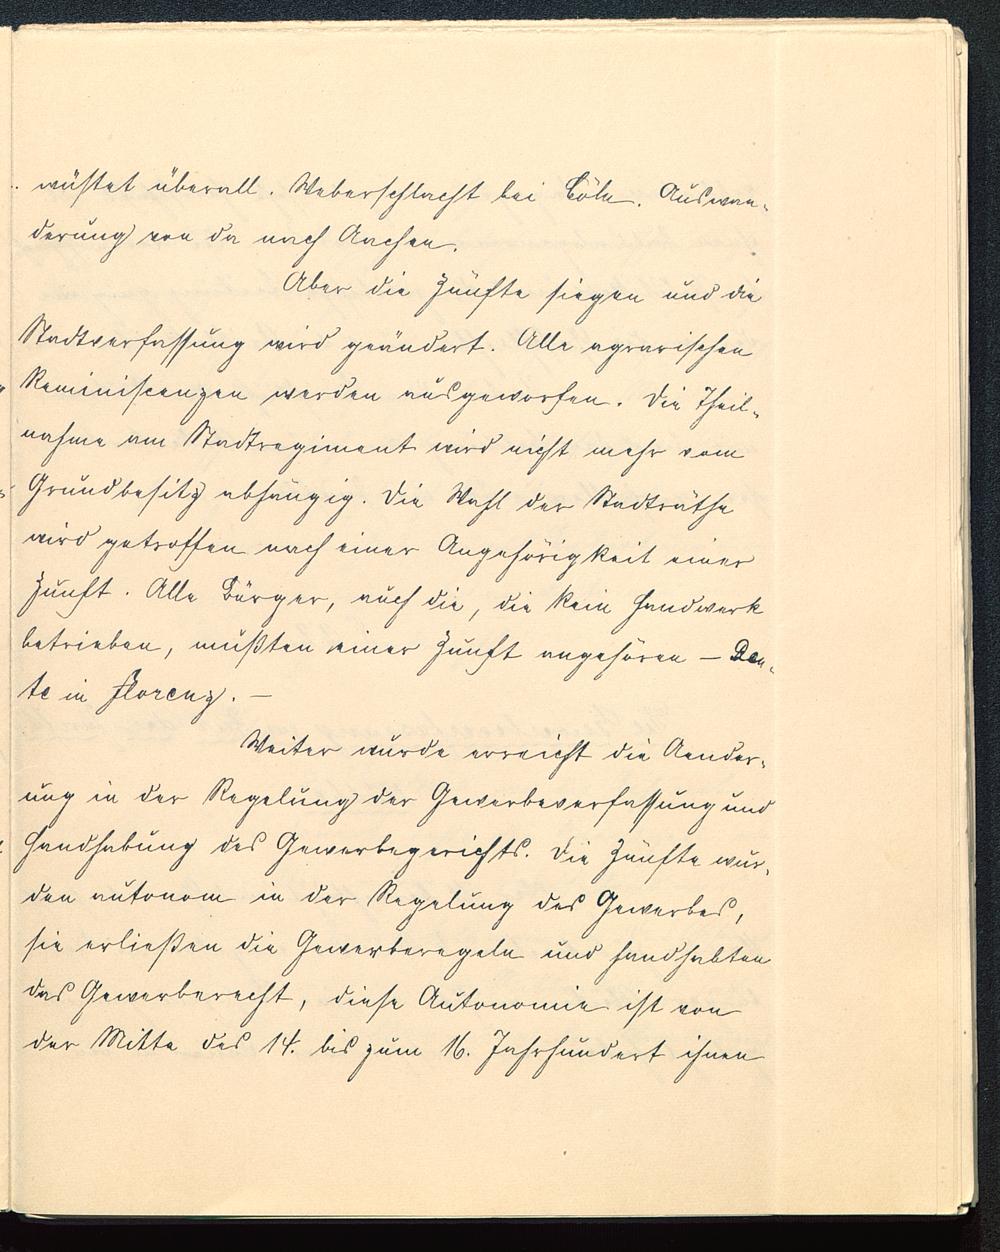 wüstet überall. Weberschlacht bei Cöln. Auswan-
derung von da nach Aachen.
Aber die Zünfte siegen und die
Stadtverfassung wird geändert. Alle agrarischen
Reminiscenzen werden ausgeworfen. Die Theil-
nahme am Stadtregiment wird nicht mehr vom
Grundbesitz abhängig. Die Wahl der Stadträthe
wird getroffen nach einer Angehörigkeit einer
Zunft. Alle Bürger, auch die, die kein Handwerk
betrieben, mußten einer Zunft angehören – Dan-
te in Florenz. –
Weiter wurde erreicht die Aender-
ung in der Regelung der Gewerbeverfassung und
Handhabung des Gewerbegerichts. Die Zünfte wur-
den autonom in der Regelung des Gewerbes,
sie erließen die Gewerberegeln und handhabten
das Gewerberecht, diese Autonomie ist von
der Mitte des 14. bis zum 16. Jahrhundert ihnen